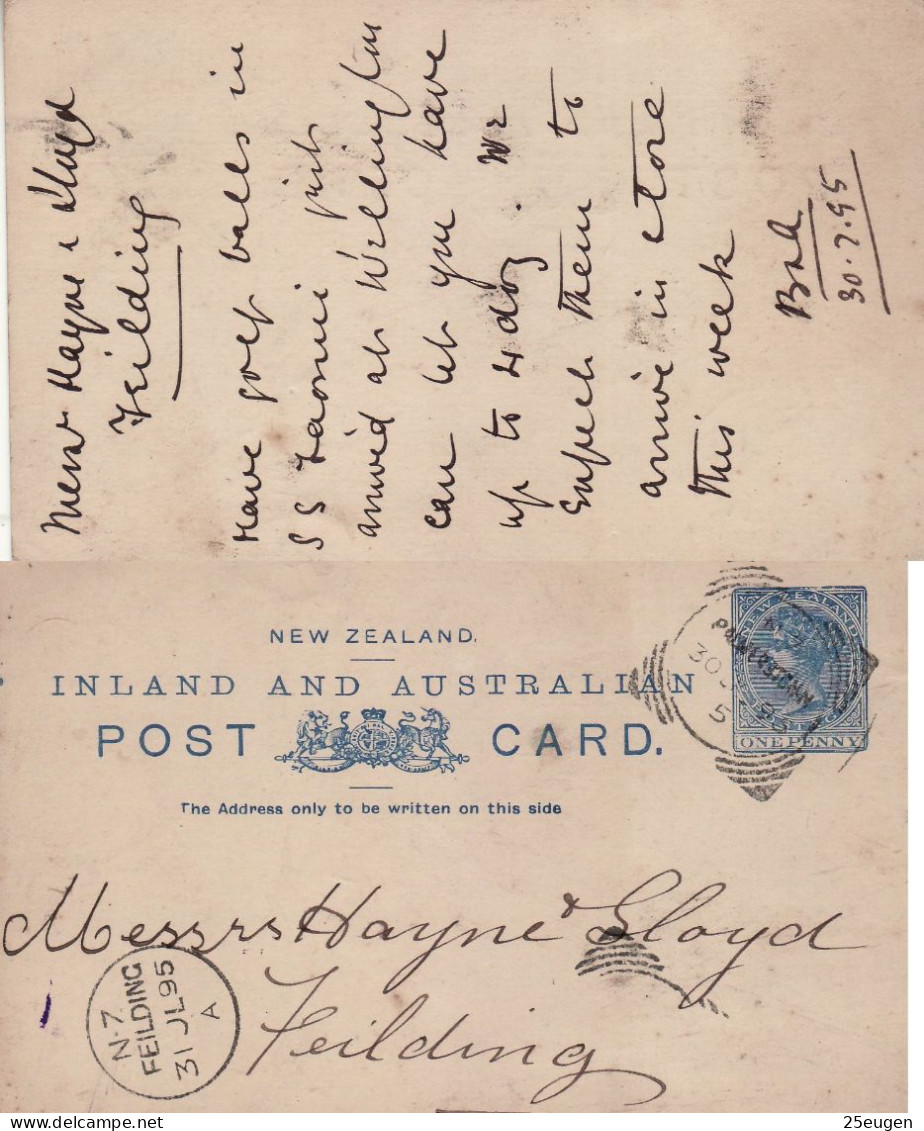 Messrs Hayne & Lloyd
Feilding
Have golf balls in
S S Taomi just
arrived at Wellington
can let you have
up to 4 doz. We
Expect them to
arrive in store
this week
30.7.95
NEW ZEALAND.
INLAND AND AUSTRALIAN
POST CARD.
The Address only to be written on this side
NEW ZEALAND
ONE PENNY
N.Z
30
5
Messrs Hayne & Lloyd
Feilding
N.Z
FEILDING
31 JL 95
A
25eugen